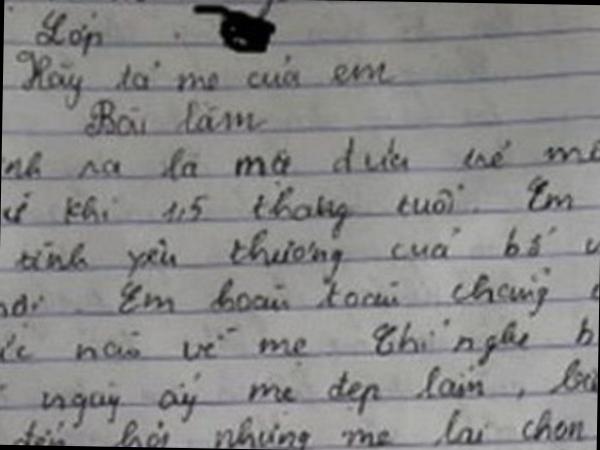 Lớp
Hãy tả mẹ của em
Bài làm
ra là một đứa trẻ
khi 1,5 tháng tuổi. Em
tình yêu thương của bố
Em hoàn toàn chẳng
nào về mẹ. Chỉ nghe
ngày ấy mẹ đẹp lắm,
đến hỏi nhưng mẹ lại chọn